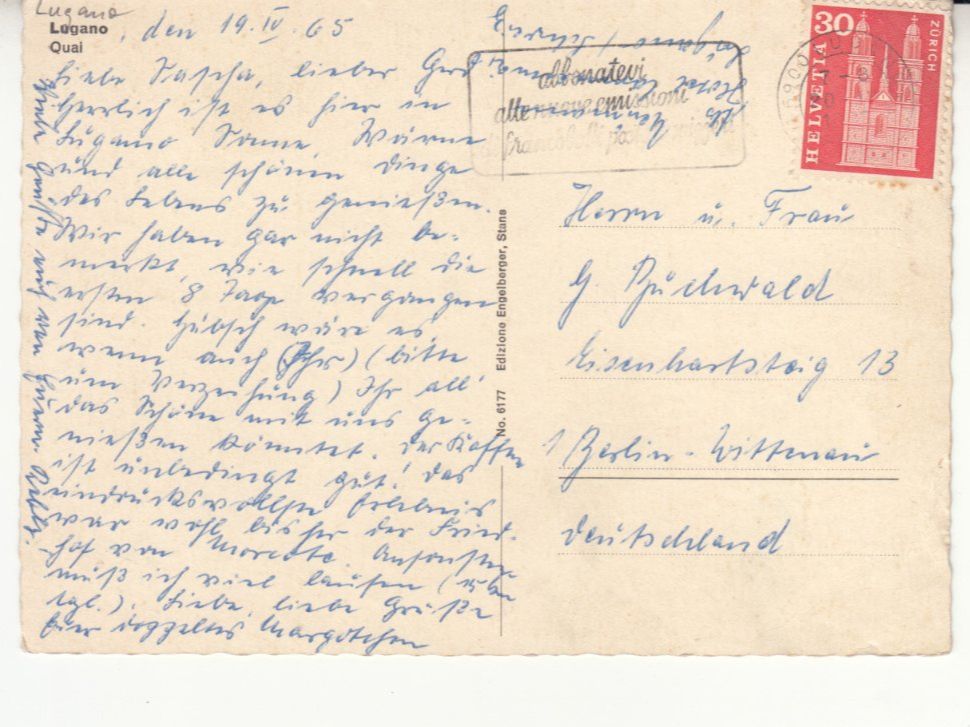 Lugano
Lugano
Quai
, den 19. IV. 65
Liebe Sascha, lieber Gerd
Herrlich ist es hier in
Lugano Sonne, Wärme
und alle schönen Dinge
des Lebens zu genießen.
Wir haben gar nicht be-
merkt, wie schnell die
ersten 8 Tage vergangen
sind. Hübsch wäre es
wenn auch (Ihr) (bitte
um Verzeihung) Ihr all'
das Schöne mit uns ge-
nießen könntet. Der Kaffee
ist unbedingt gut! Das
eindrucksvollste Erlebnis
war wohl bisher der Fried-
hof von Morcote. Ansonsten
muß ich viel laufen
tgl.). Liebe, liebe Grüße
Euer doppeltes Margotchen
Viele Grüße auch von
Lugano / Schweiz
Hotel
abbonatevi
alle nuove emissioni
di francobolli
HELVETIA 30
ZÜRICH
No. 6177 Edizione Engelberger, Stans
Herrn u. Frau
G. Buchwald
Eisenhartsteig 13
1 Berlin-Wittenau
Deutschland